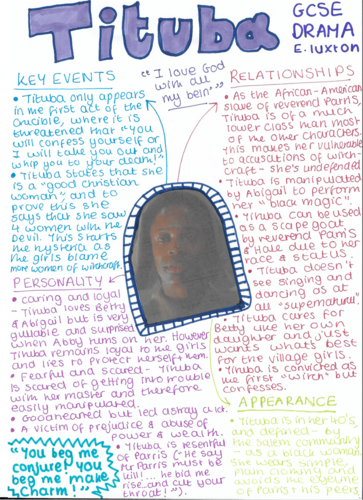 Tituba
GCSE
DRAMA
E.luxton
KEY EVENTS
• Tituba only appears
in the first act of the
Crucible, where it is
threatened that "You
will confess yourself or
I will take you out and
whip you to your death!"
• Tituba states that she
is a "good christian
woman", and to
prove this she
says that she saw
4 women with the
Devil. This starts
the hysteria as
the girls blame
more women of witchcraft.
"I love God
with all
my bein'"
RELATIONSHIPS
• As the African-American
slave of reverend Parris,
Tituba is of a much
lower class than most
of the other characters.
This makes her vulnerable
to accusations of witch-
craft - she's undefended
• Tituba is manipulated
by Abigail to perform
her "black magic".
• Tituba can be used
as a scape goat
by reverend Parris
& Hale due to her
race & status.
• Tituba doesn't
see singing and
dancing as at
all "supernatural"
• Tituba cares for
Betty like her own
daughter and just
wants what's best
for the village girls.
• Tituba is convicted as
the first "witch" but
confesses.
PERSONALITY
• caring and loyal
- Tituba loves Betty
& Abigail but is very
gullable and surprised
when Abby turns on her. However
Tituba remains loyal to the girls
and lies to protect herself & them.
• Fearful and scared - Tituba
is scared of getting into trouble
with her master and therefore
easily manipulated.
• Goodhearted but led astray
• A victim of prejudice & abuse of
power & wealth.
• Tituba is resentful
of Parris ("He say
Mr Parris must be
kill!... he bid me
rise and cut your
throat!").
"You beg me
conjure! You
beg me make
charm!"
APPEARANCE
• Tituba is in her 40's,
and defined - by
the Salem community
- as a black woman.
she wears simple,
plain clothing and
avoids the eyeline
of Parris & his peers